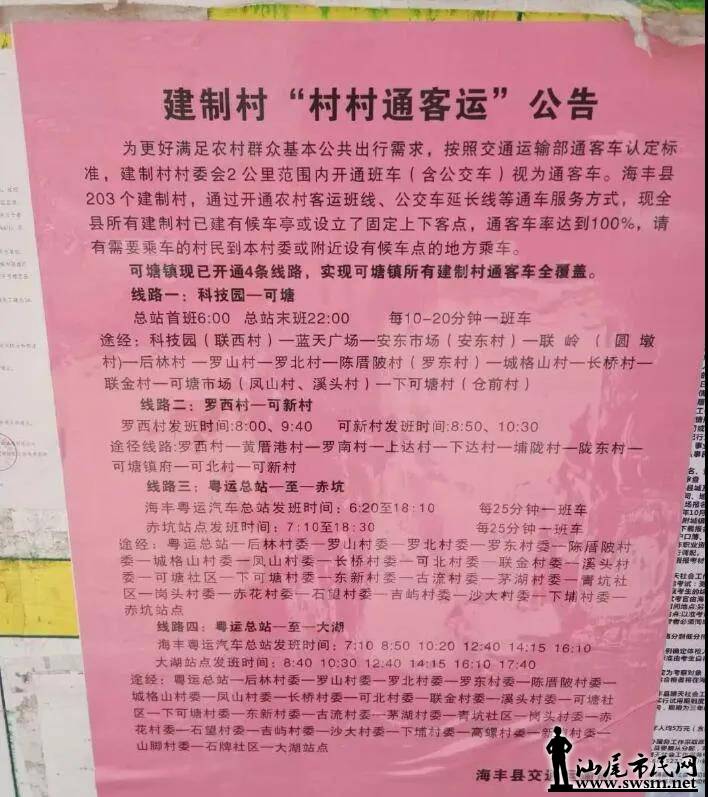 建制村“村村通客运”公告
为更好满足农村群众基本公共出行需求，按照交通运输部通客车认定标
准，建制村村委会2公里范围内开通班车（含公交车）视为通客车。海丰县
203个建制村，通过开通农村客运班线、公交车延长线等通车服务方式，现全
县所有建制村已建有候车亭或设立了固定上下客点，通客车率达到100%，请
有需要乘车的村民到本村委或附近设有候车点的地方乘车。
可塘镇现已开通4条线路，实现可塘镇所有建制村通客车全覆盖。
线路一：科技园—可塘
总站首班6:00 总站末班22:00 每10-20分钟一班车
途经：科技园（联西村）—蓝天广场—安东市场（安东村）—联岭（圆墩
村)—后林村—罗山村—罗北村—陈厝陂村（罗东村）—城格山村—长桥村—
联金村—可塘市场（凤山村、溪头村）—下可塘村（仓前村）
线路二：罗西村—可新村
罗西村发班时间:8:00、9:40 可新村发班时间:8:50、10:30
途径线路:罗西村—黄厝港村—罗南村—上达村—下达村—埔陇村—陇东村—
可塘镇府—可北村—可新村
线路三：粤运总站—至—赤坑
海丰粤运汽车总站发班时间：6:20至18:10 每25分钟一班车
赤坑站点发班时间：7:10至18:30 每25分钟一班车
途经：粤运总站—后林村委—罗山村委—罗北村委—罗东村委—陈厝陂村
委—城格山村委—凤山村委—长桥村委—可北村委—联金村委—溪头村
委—可塘社区—下可塘村委—东新村委—古流村委—茅湖村委—青坑社
区—岗头村委—赤花村委—石望村委—吉屿村委—沙大村委—下埔村委—
赤坑站点
线路四：粤运总站—至—大湖
海丰粤运汽车总站发班时间：7:10 8:50 10:20 12:40 14:15 16:10
大湖站点发班时间：8:40 10:30 12:40 14:15 16:10 17:40
途经：粤运总站—后林村委—罗山村委—罗北村委—罗东村委—陈厝陂村委—
城格山村委—凤山村委—长桥村委—可北村委—联金村委—溪头村委—可塘社
区—下可塘村委—东新村委—古流村委—茅湖村委—青坑社区—岗头村委—赤
花村委—石望村委—吉屿村委—沙大村委—下埔村委—高螺村委—新
山脚村委—石牌社区—大湖站点
海丰县交通
汕尾市民网
www.swsm.net